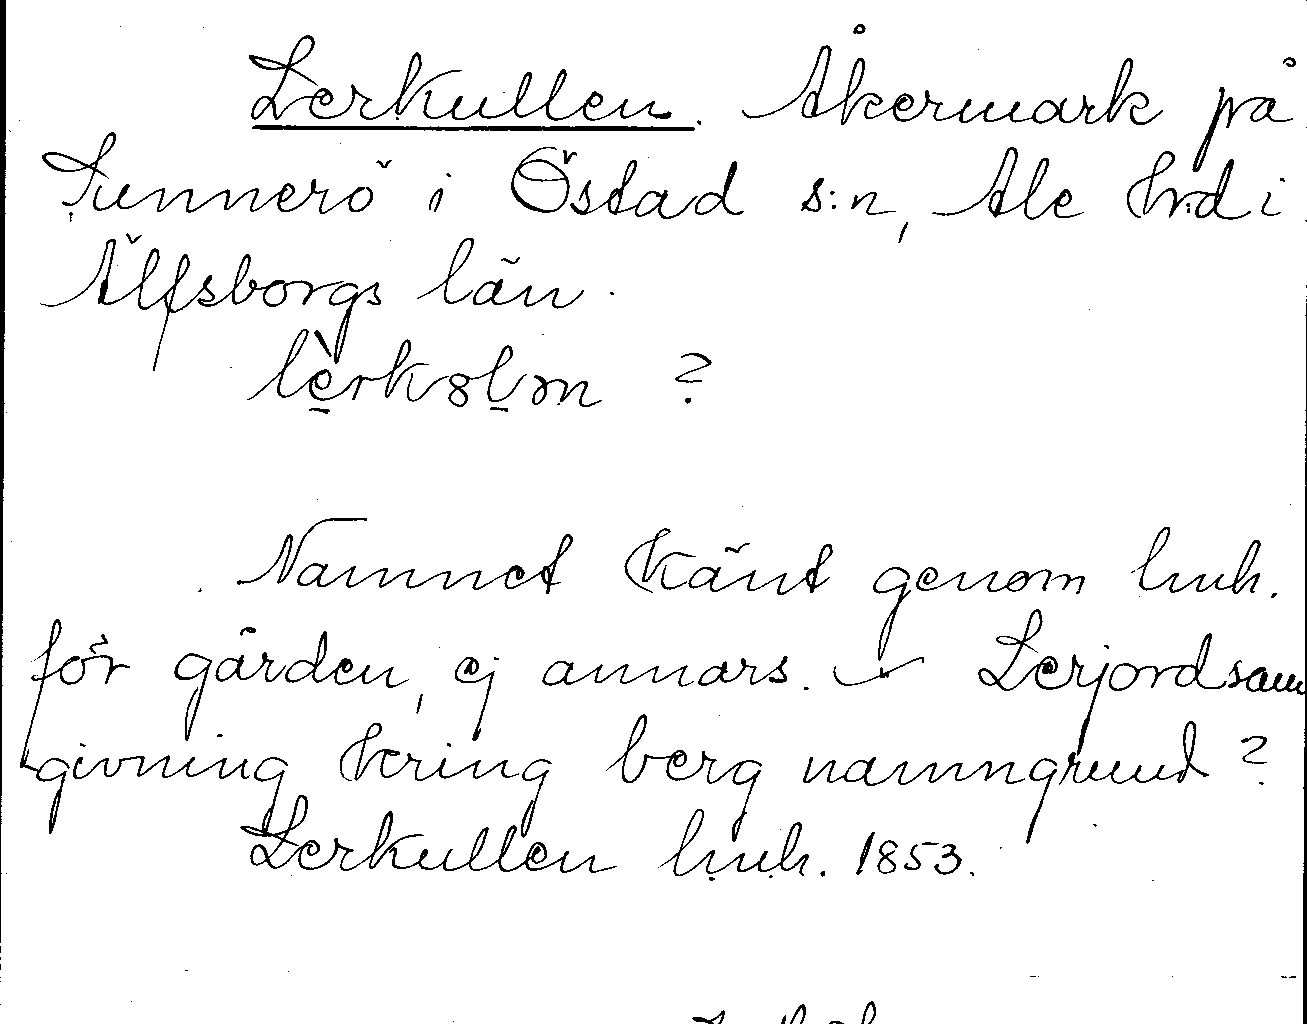 Lerkullen. Åkermark på
Sunnerö i Östad s:n, Ale hrd i
Älfsborgs län.
?
Namnet känt genom lmh.
för gården, ej annars. Lerjordsom
givning kring berg namngrund?
Lerkullen lmh. 1853.